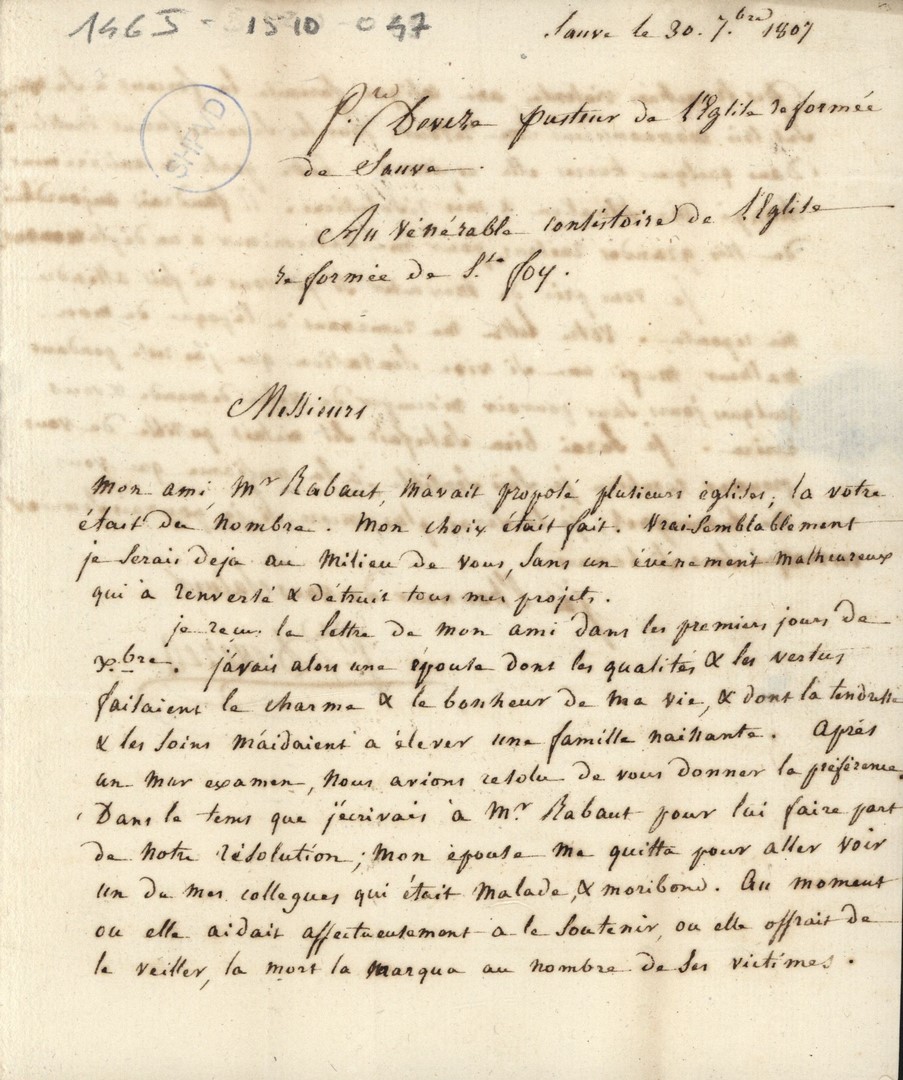 1465 - 1510 - 047
Sauve le 30. 7.bre 1807
SHPVD
P.re Deveze pasteur de l'Eglise reformée
de Sauve.
Au Vénérable consistoire de l'Eglise
reformée de S.te foy.
Messieurs
Mon ami, Mr Rabaut, m'avait proposé plusieurs églises; la votre
était du nombre. Mon choix était fait. Vraisemblablement
je serais deja au milieu de vous, sans un événement malheureux
qui a renversé & détruit tous mes projets.
je recus la lettre de mon ami dans les premiers jours de
x.bre. j'avais alors une épouse dont les qualités & les vertus
faisaient le charme & le bonheur de ma vie, & dont la tendresse
& les soins m'aidaient a élever une famille naissante. Après
un mur examen, nous avions resolu de vous donner la préférence.
Dans le tems que j'ecrivais à Mr Rabaut pour lui faire part
de notre résolution; mon epouse me quitta pour aller voir
un de mes collegues qui était malade, & moribond. Au moment
ou elle aidait affectueusement a le soutenir, ou elle offrait de
le veiller, la mort la marqua au nombre de ses victimes.